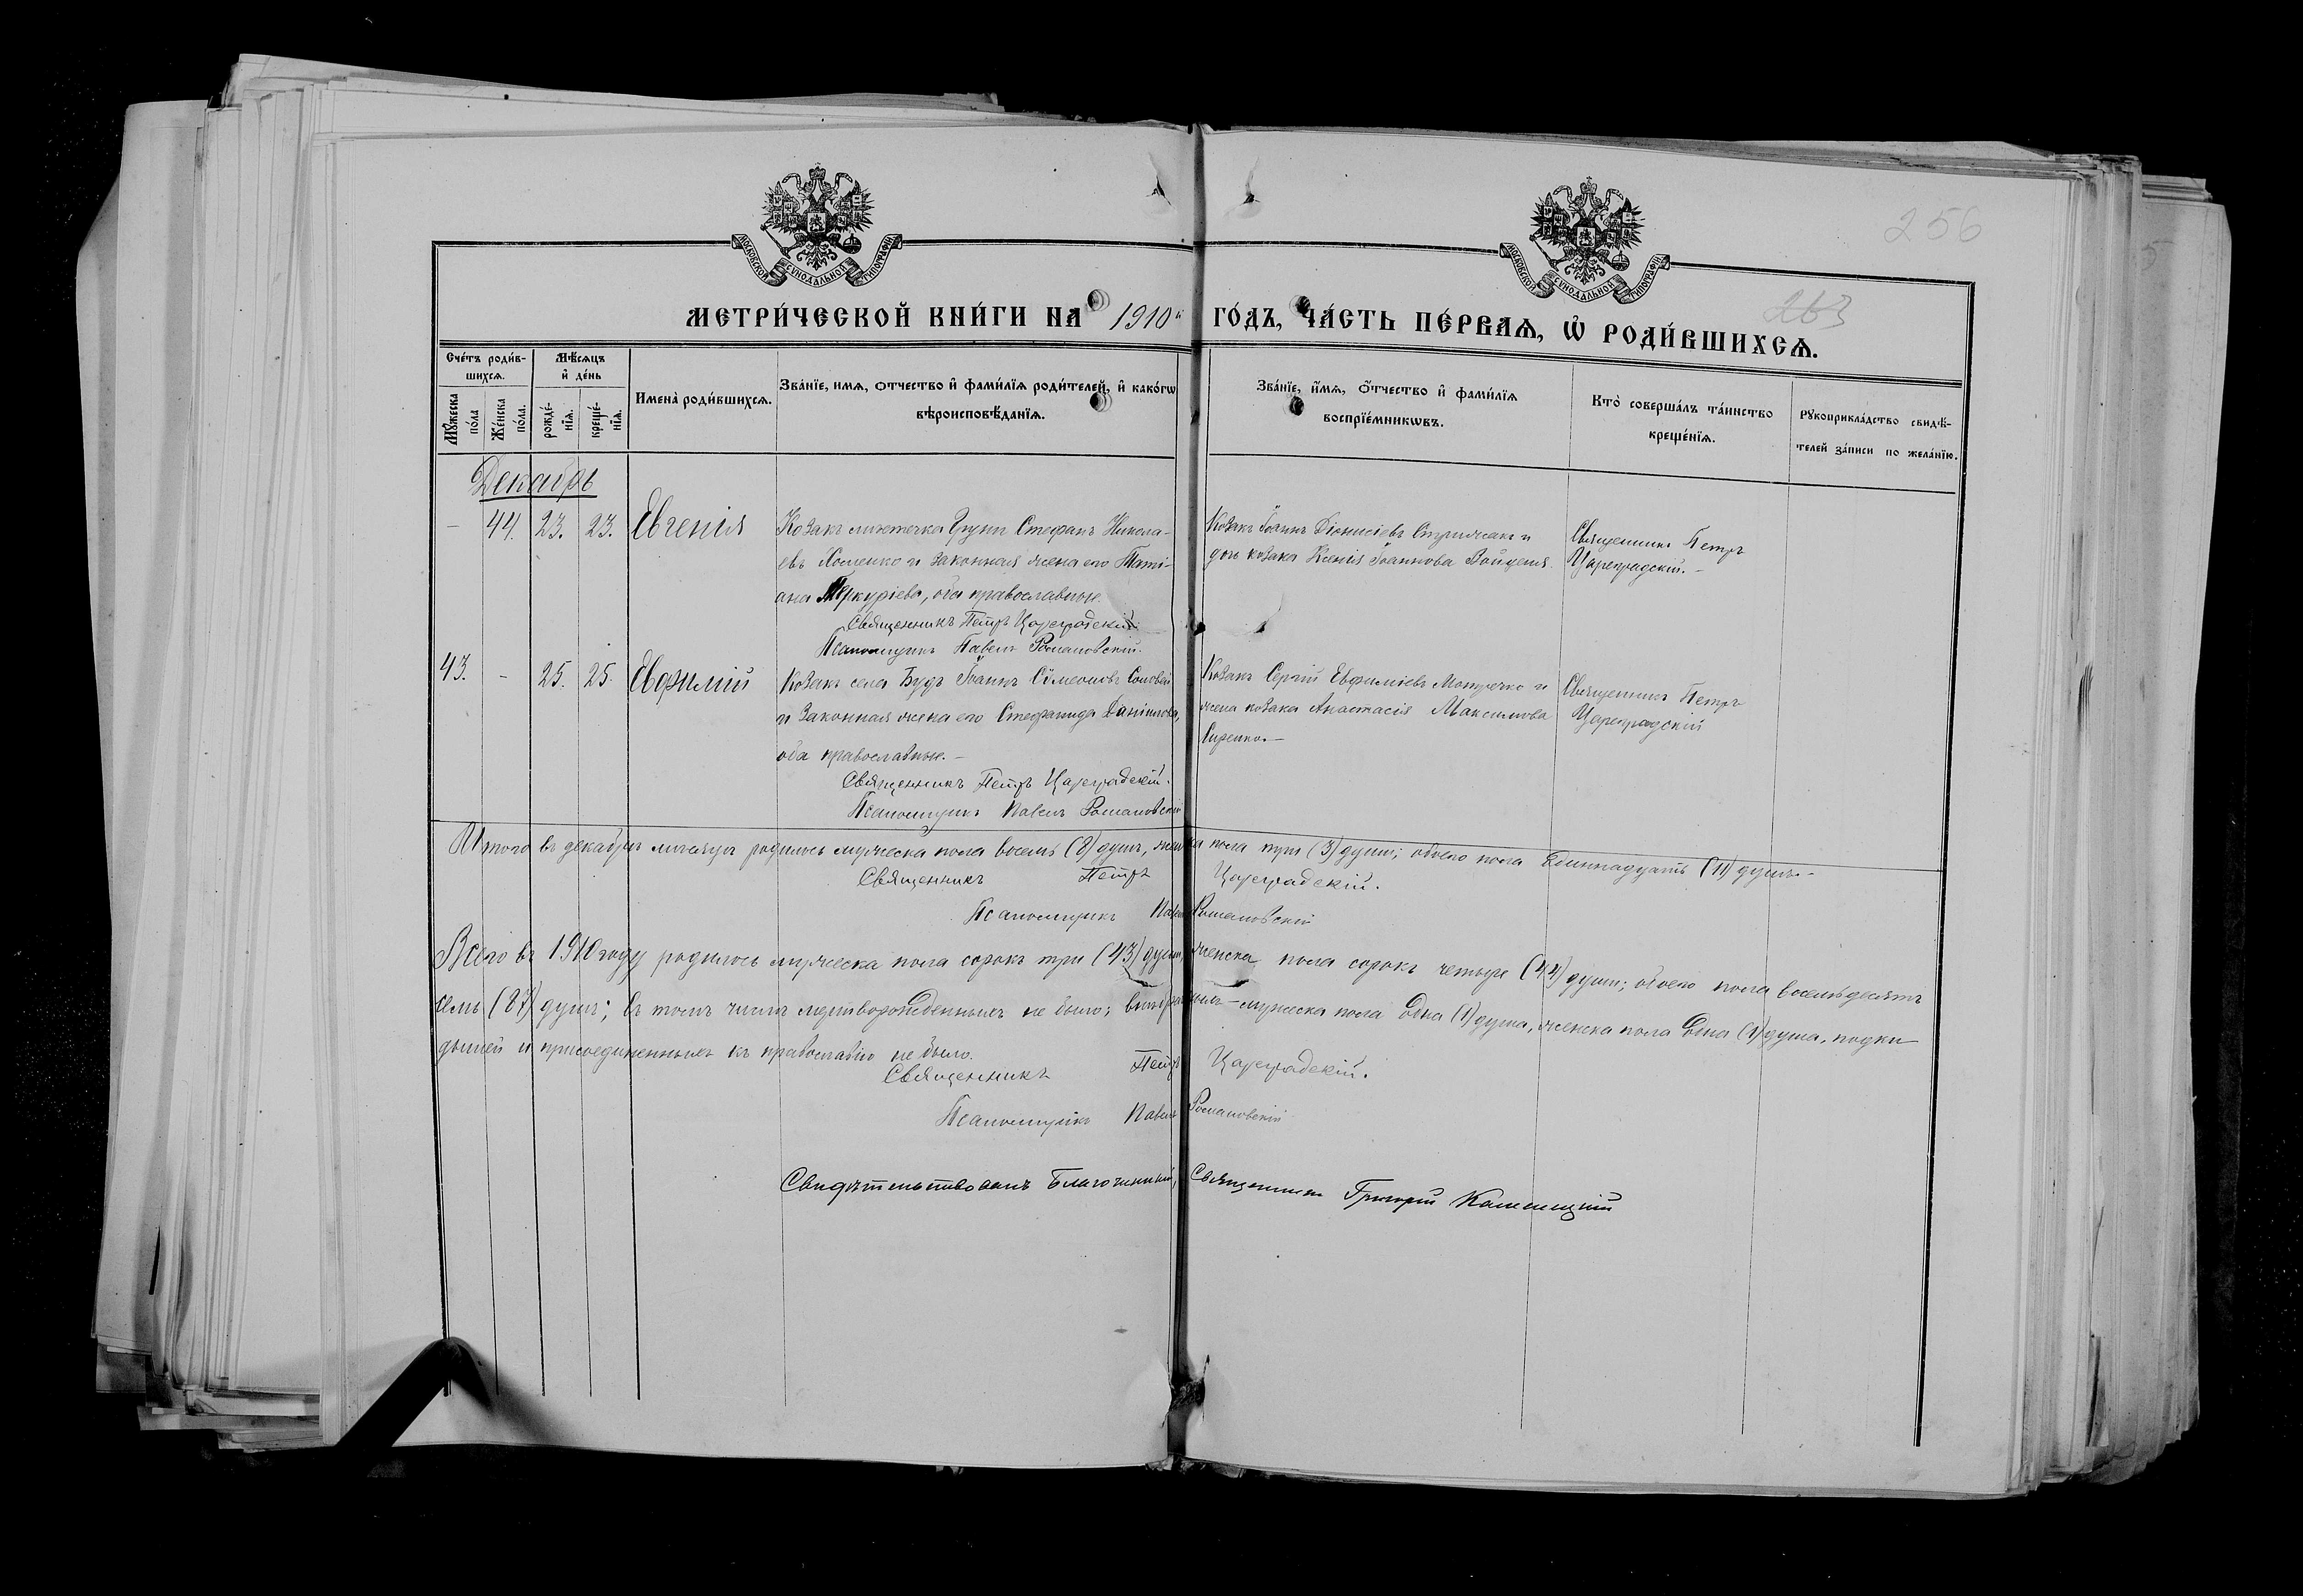 256
263
МОСКОВСКОЙ СѴНОДАЛЬНОЙ ТИПОГРАФІИ
МОСКОВСКОЙ СѴНОДАЛЬНОЙ ТИПОГРАФІИ
МЕТРИ́ЧЕСКОЙ КНИ́ГИ НА 1910й ГО́ДЪ, ЧА́СТЬ ПЕ́РВАѦ, Ѡ҆ РОДИ́ВШИХСѦ.
Сче́тъ роди́в-
шихсѧ.
Мѣ́сѧцъ
и҆ де́нь
Мꙋ́жеска
по́ла
Же́нска
по́ла.
рожде́-
нїѧ.
креще́-
нїѧ.
Имена̀ роди́вшихсѧ.
Зва́нїе, имѧ, отчество и҆ фами́лїѧ роди́телей, и҆ како́гѡ
вѣроисповѣ́данїѧ.
Зва́нїе, и҆́мѧ, о҆́тчество и҆ фами́лїѧ
воспрїе́мникѡвъ.
Кто̀ соверша́лъ та́инство
креще́нїѧ.
Рꙋкоприкла́дство свидѣ́-
телей за́писи по жела́нїю.
Декабрь
— 44. 23. 23. Евгенія
Козакъ мѣстечка Груни Стефанъ Никола-
евъ Хоменко и законная жена его Таті-
ана Меркуріева, оба православные.
Священникъ Петръ Цареградскій.
Псаломщикъ Павелъ Романовскій.
Козакъ Іоаннъ Діонисіевъ и
дочь козака Ксенія Іоаннова
Священникъ Петръ
Цареградскій. —
43. — 25. 25. Евфимій
Козакъ села Будъ Іоаннъ Симеоновъ Соловей
и законная жена его Стефанида Даніилова,
оба православные. —
Священникъ Петръ Цареградскій.
Псаломщикъ Павелъ Романовскій
Козакъ Сергій Евфиміевъ и
жена козака Анастасія Максимова
Сиренко. —
Священникъ Петръ
Цареградскій
Итого въ декабрѣ мѣсяцѣ родилось мужеска пола восемь (8) душъ, женска пола три (3) души; обоего пола одиннадцать (11) душъ. —
Священникъ Петръ Цареградскій.
Псаломщикъ Павелъ Романовскій
Всего въ 1910 году родилось мужеска пола сорокъ три (43) души, женска пола сорокъ четыре (44) души; обоего пола восемьдесятъ
семь (87) душъ; въ томъ числѣ мертворожденныхъ не было; — мужеска пола одна (1) душа, женска пола одна (1) душа, подки-
дышей и присоединенныхъ къ православію не было.
Священникъ Петръ Цареградскій.
Псаломщикъ Павелъ Романовскій
Свидѣтельствовалъ Благочинный, Священникъ Григорій